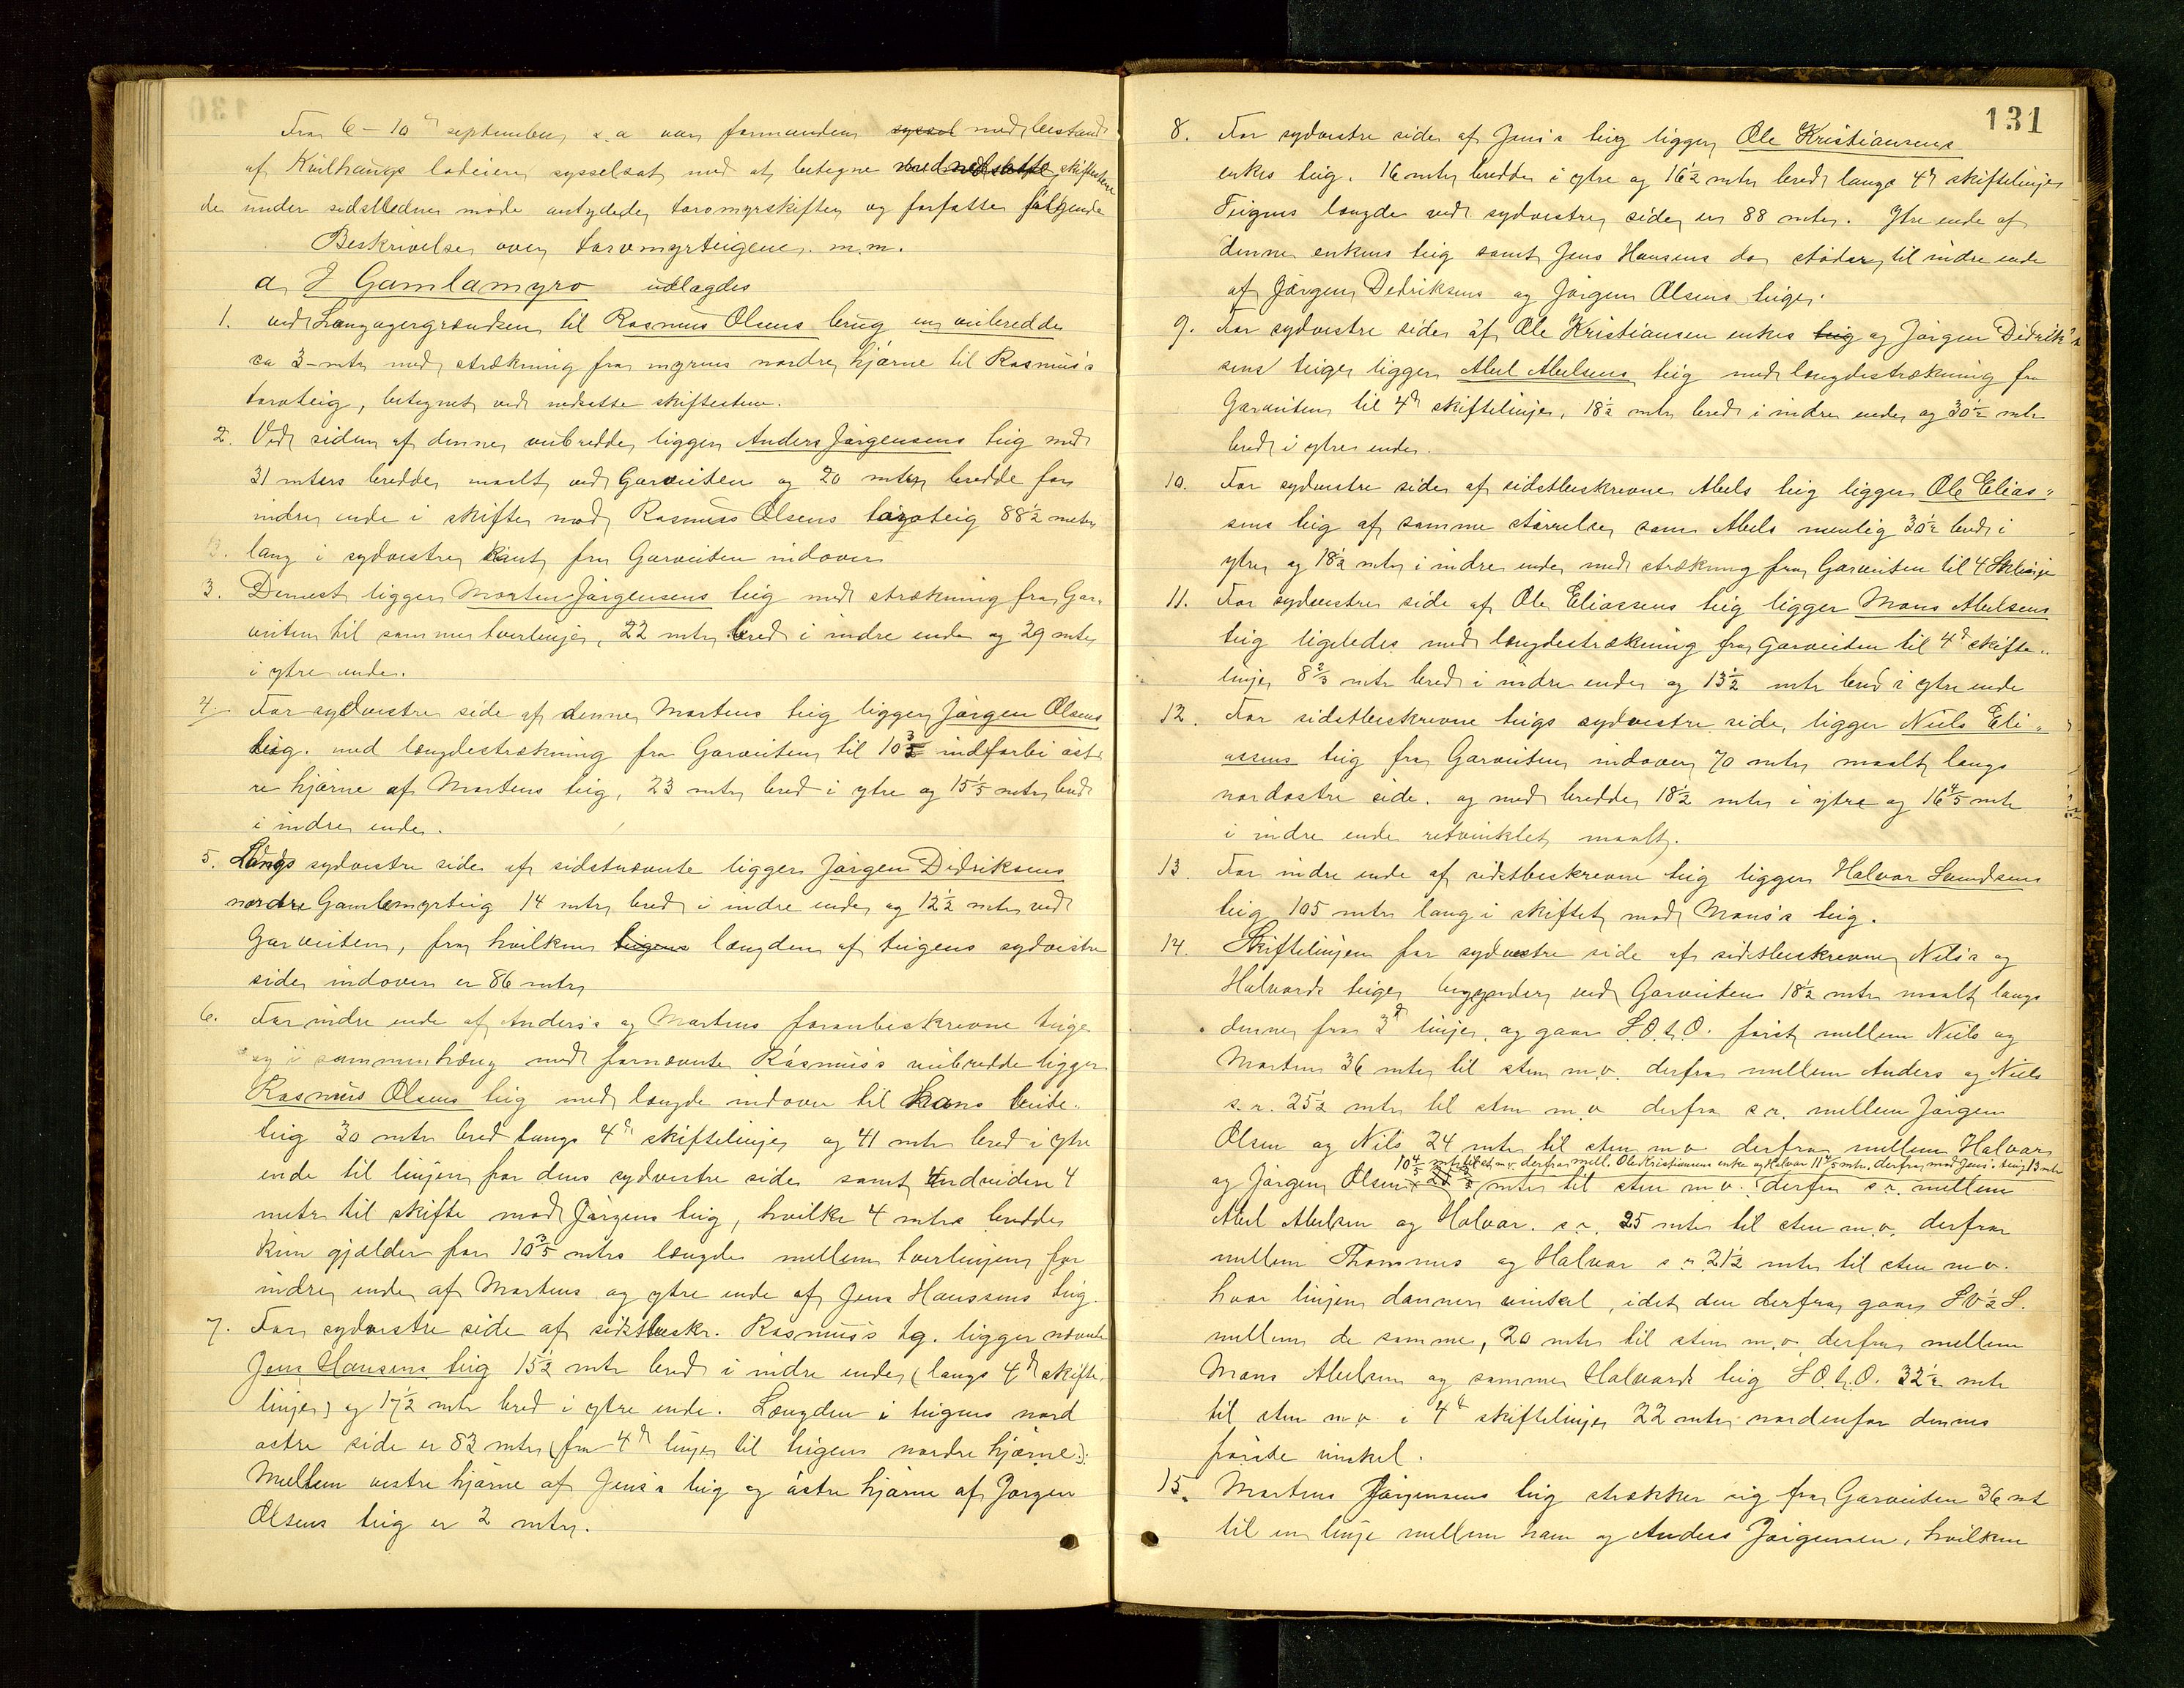 Fra 6 – 10de september s.a var formanden syssel med bestand
af Kvilhaugs lodeiere sysselsat med at betegne med nedsatte skiftestene
de under sidstledne møde antydede torvmyrskifter og forfatte følgende
Beskrivelse over torvmyrteigene. m.m.
a, I Gamlamyro udlagdes
1. ved Langagergrændsen til Rasmus Olsens brug en veibredde
ca 3 mtr med strækning fra myrens nordre hjørne til Rasmus's
torvteig, betegnet ved nedsatte skiftesten.
2. Ved siden af denne veibredde ligger Anders Jørgensens teig med
31 mters bredde maalt ved Garveiten og 20 mters bredde for
indre ende i skifte mod Rasmus Olsens torvteig 88½ meter
lang i sydvestre kant fra Garveiten indover
3. Dernest ligger Morten Jørgensens teig med strækning fra Gar-
veiten til samme tverlinje, 22 mtr bred i indre ende og 29 mtr
i ytre ende.
4. For sydvestre side af denne Mortens teig ligger Jørgen Olsens
teig. med længdestrækning fra Garveiten til 10 3/5 indforbi øst-
re hjørne af Mortens teig, 23 mtr bred i ytre og 15 1/5 mtr bred
i indre ende.
5. Langs sydvestre side af sidstnævnte ligger Jørgen Didriksens
nordre Gamlemyrteig 14 mtr bred i indre ende og 12½ mtr ved
Garveiten, fra hvilken teigens længden af teigens sydvestre
side indover er 86 mtr
6. For indre ende af Anders's og Mortens foranbeskrevne teige
og i sammenhæng med fornævnte Rasmus's veibredde ligger
Rasmus Olsens teig med længde indover til hans beite-
teig 30 mtr bred langs 4de skiftelinje og 41 mtr bred i ytre
ende til linjen for dens sydvestre side samt endvidere 4
metr til skifte mod Jørgens teig, hvilke 4 mtrs bredde
kun gjælder for 10 3/5 mtrs længde mellem tverlinjen for
indre ende af Mortens og ytre ende af Jens Hansens teig.
7. For sydvestre side af sidstbeskr. Rasmus's tg. ligger nævnte
Jens Hansens teig 15½ mtr bred i indre ende (langs 4de skifte
linje) og 17½ mtr bred i ytre ende. Længden i teigens nord
østre side er 83 mtr (fra 4de linje til teigens nordre hjørne).
Mellem vestre hjørne af Jens's teig og østre hjørne af Jørgen
Olsens teig er 2 mtr.
131
8. For sydvestre side af Jens's teig ligger Ole Kristiansens
enkes teig. 16 mtr bredde i ytre og 16½ mtr bred langs 4de skiftelinje
Teigens længde ved sydvestre side er 88 mtr. Ytre ende af
denne enkens teig samt Jens Hansens do støder til indre ende
af Jørgen Dedriksens og Jørgen Olsens teiger.
9. For sydvestre side af Ole Kristiansen enkes teig og Jørgen Didrik-
sens teige ligger Abel Abelsens teig med længdestrækning fra
Garveiten til 4de skiftelinje, 18½ mtr bred i indre ende og 30½ mtr
bred i ytre ende.
10. For sydvestre side af sidstbeskrevne Abels teig ligger Ole Elias-
sens teig af samme størrelse som Abels nemlig 30½ bred i
ytre og 18½ mtr i indre ende med strækning fra Garveiten til 4 Sk linje
11. For sydvestre side af Ole Eliassens teig ligger Mons Abelsens
teig ligeledes med længdestrækning fra Garveiten til 4de skifte-
linje 8 2/3 mtr bred i indre ende og 13½ mtr bred i ytre ende
12. For sidstbeskrevne teigs sydvestre side, ligger Niels Eli-
assens teig fra Garveiten indover 70 mtr maalt langs
nordøstre side. og med bredde 18½ mtr i ytre og 16 4/5 mtr
i indre ende retvinklet maalt.
13. For indre ende af sidstbeskrevne teig ligger Halvor Svendsens
teig 105 mtr lang i skiftet mod Mons's teig.
14. Skiftelinjen for sydvestre side af sidstbeskrevne Nils's og
Halvards teige begynder ved Garveiten 18½ mtr maalt langs
denne fra 3de linje, og gaar S.O.t.O. først mellem Niels og
Morten 36 mtr til sten m.v. derfra mellem Anders og Niels
s.r. 25½ mtr til sten m.v. derfra s.r. mellem Jørgen
Olsen og Nils 24 mtr til sten m.v. derfra mellem Halvor
10 4/5 mtr til st. m.v. derfra mell. Ole Kristiansens enke og Halvor 11 4/5 mtr. derfra mod Jens's teig 13 mtr
og Jørgen Olsen mtr til sten m.v. derfra s.r. mellem
Abel Abelsen og Halvor. s.r. 25 mtr til sten m.v. derfra
mellem Thommes og Halvor s.r. 21½ mtr til sten m.v.
hvor linjen danner vinkel, idet den derfra gaar SO½S.
mellem de samme, 20 mtr til sten m.v. derfra mellem
Mons Abelsen og samme Halvards teig S.O.t.O. 32½ mtr
til sten m.v. i 4de skiftelinje 22 mtr nordenfor dennes
første vinkel.
15. Mortens Jørgensens teig strækker sig fra Garveiten 36 mt
til en linje mellem ham og Anders Jørgensen, hvilken